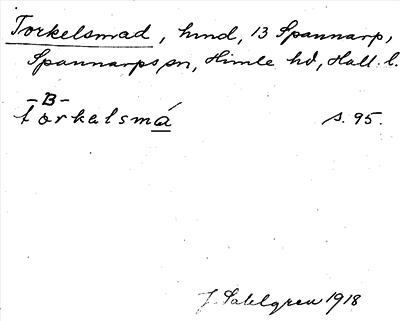 Torkelsmad, hmd, 13 Spannarp,
Spannarps sn, Himle hd, Hall. l.
-B-
torkalsmá s. 95.
J. Sahlgren 1918